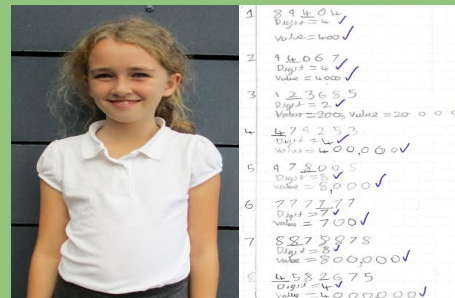 1 89404
Digit = 4 ✓
Value = 400 ✓
2 94067
Digit = 4 ✓
Value = 4000 ✓
3 123685
Digit = 2 ✓
Value = 200, Value = 20 000
4 479253
Digit = 4 ✓
Value = 400,000 ✓
5 978005
Digit = 8 ✓
Value = 8,000 ✓
6 777777
Digit = 7 ✓
Value = 700 ✓
7 8878878
Digit = 8 ✓
Value = 800,000 ✓
8 4582675
Digit = 4 ✓
Value = 4000000 ✓